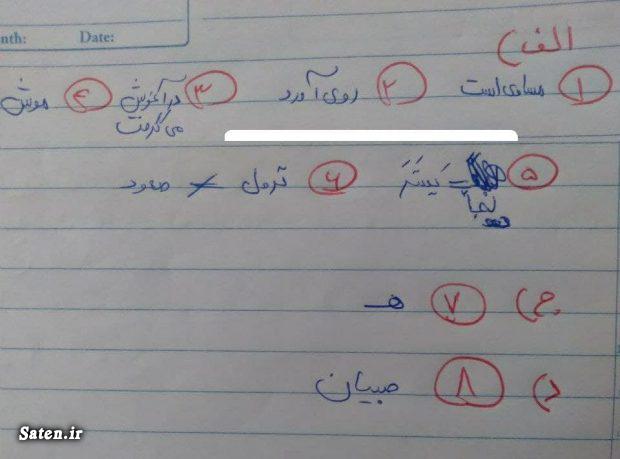 nth: Date:
الف)
۱ مساوی است ۲ روی آورد ۳ در آغوش می گرفت ۴ موش
۵ = یستتر نجأ ۶ نزول ≠ صعود
ج) ۷ هـ
د) ۸ صبیان
Saten.ir